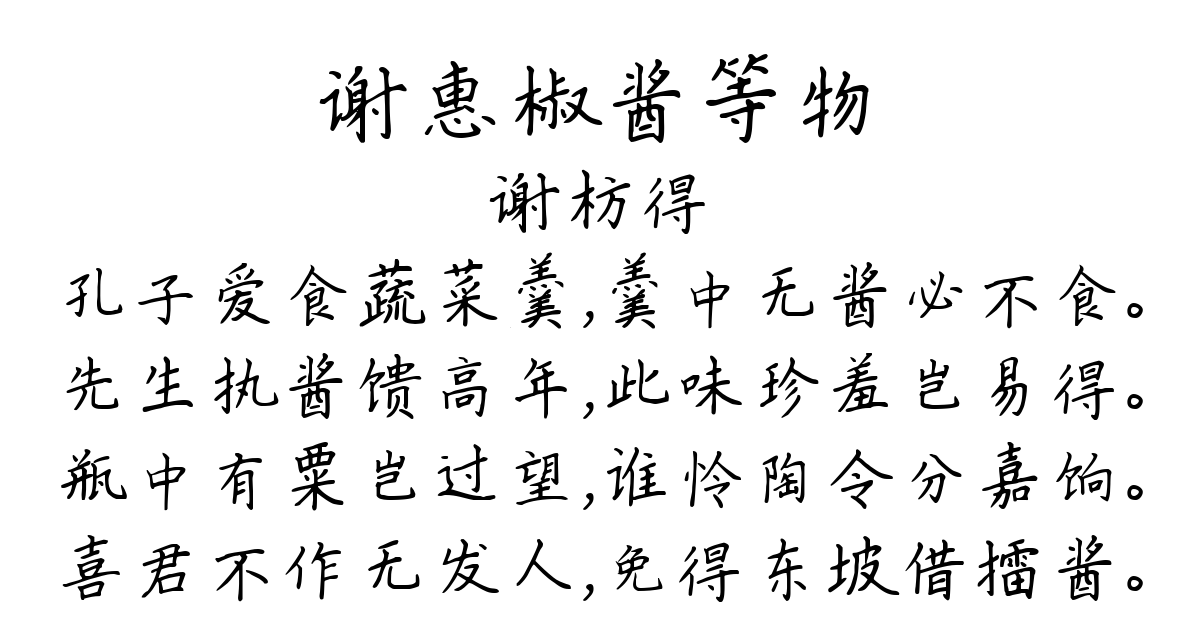 谢惠椒酱等物
谢枋得
孔子爱食蔬菜羹,羹中无酱必不食。
先生执酱馈高年,此味珍羞岂易得。
瓶中有粟岂过望,谁怜陶令分嘉饷。
喜君不作无发人,免得东坡借擂酱。